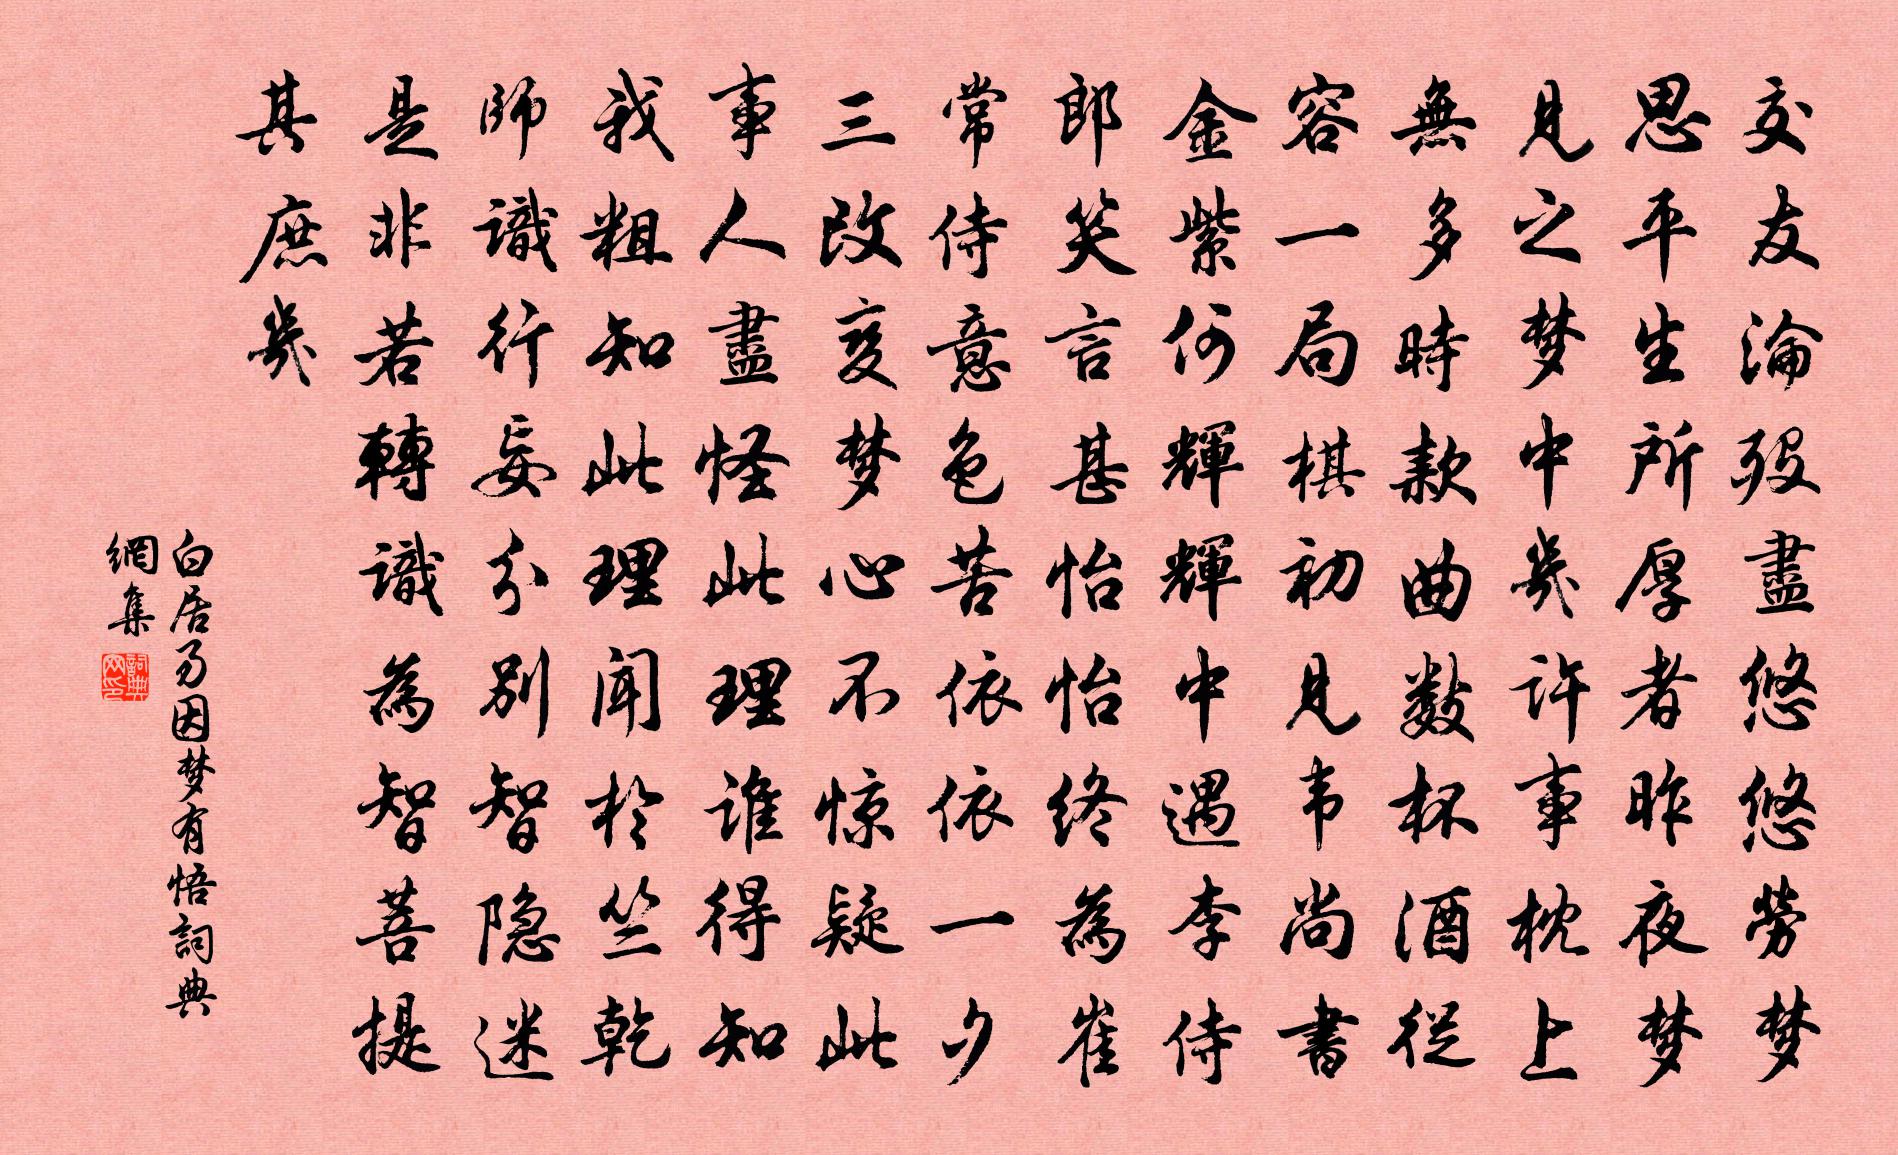 交友淪歿盡悠悠勞梦
思平生所厚者昨夜梦
見之梦中幾許事枕上
無多時款曲數杯酒從
容一局棋初見韦尚書
金紫何輝輝中遇李侍
郎笑言甚怡怡终為崔
常侍意色苦依依一夕
三改变梦心不惊疑此
事人盡怪此理谁得知
我粗知此理闻於竺乾
師識行妄分别智隐迷
是非若轉識為智菩提
其庶幾
白居易因梦有悟詞典
網集
詞典
网印